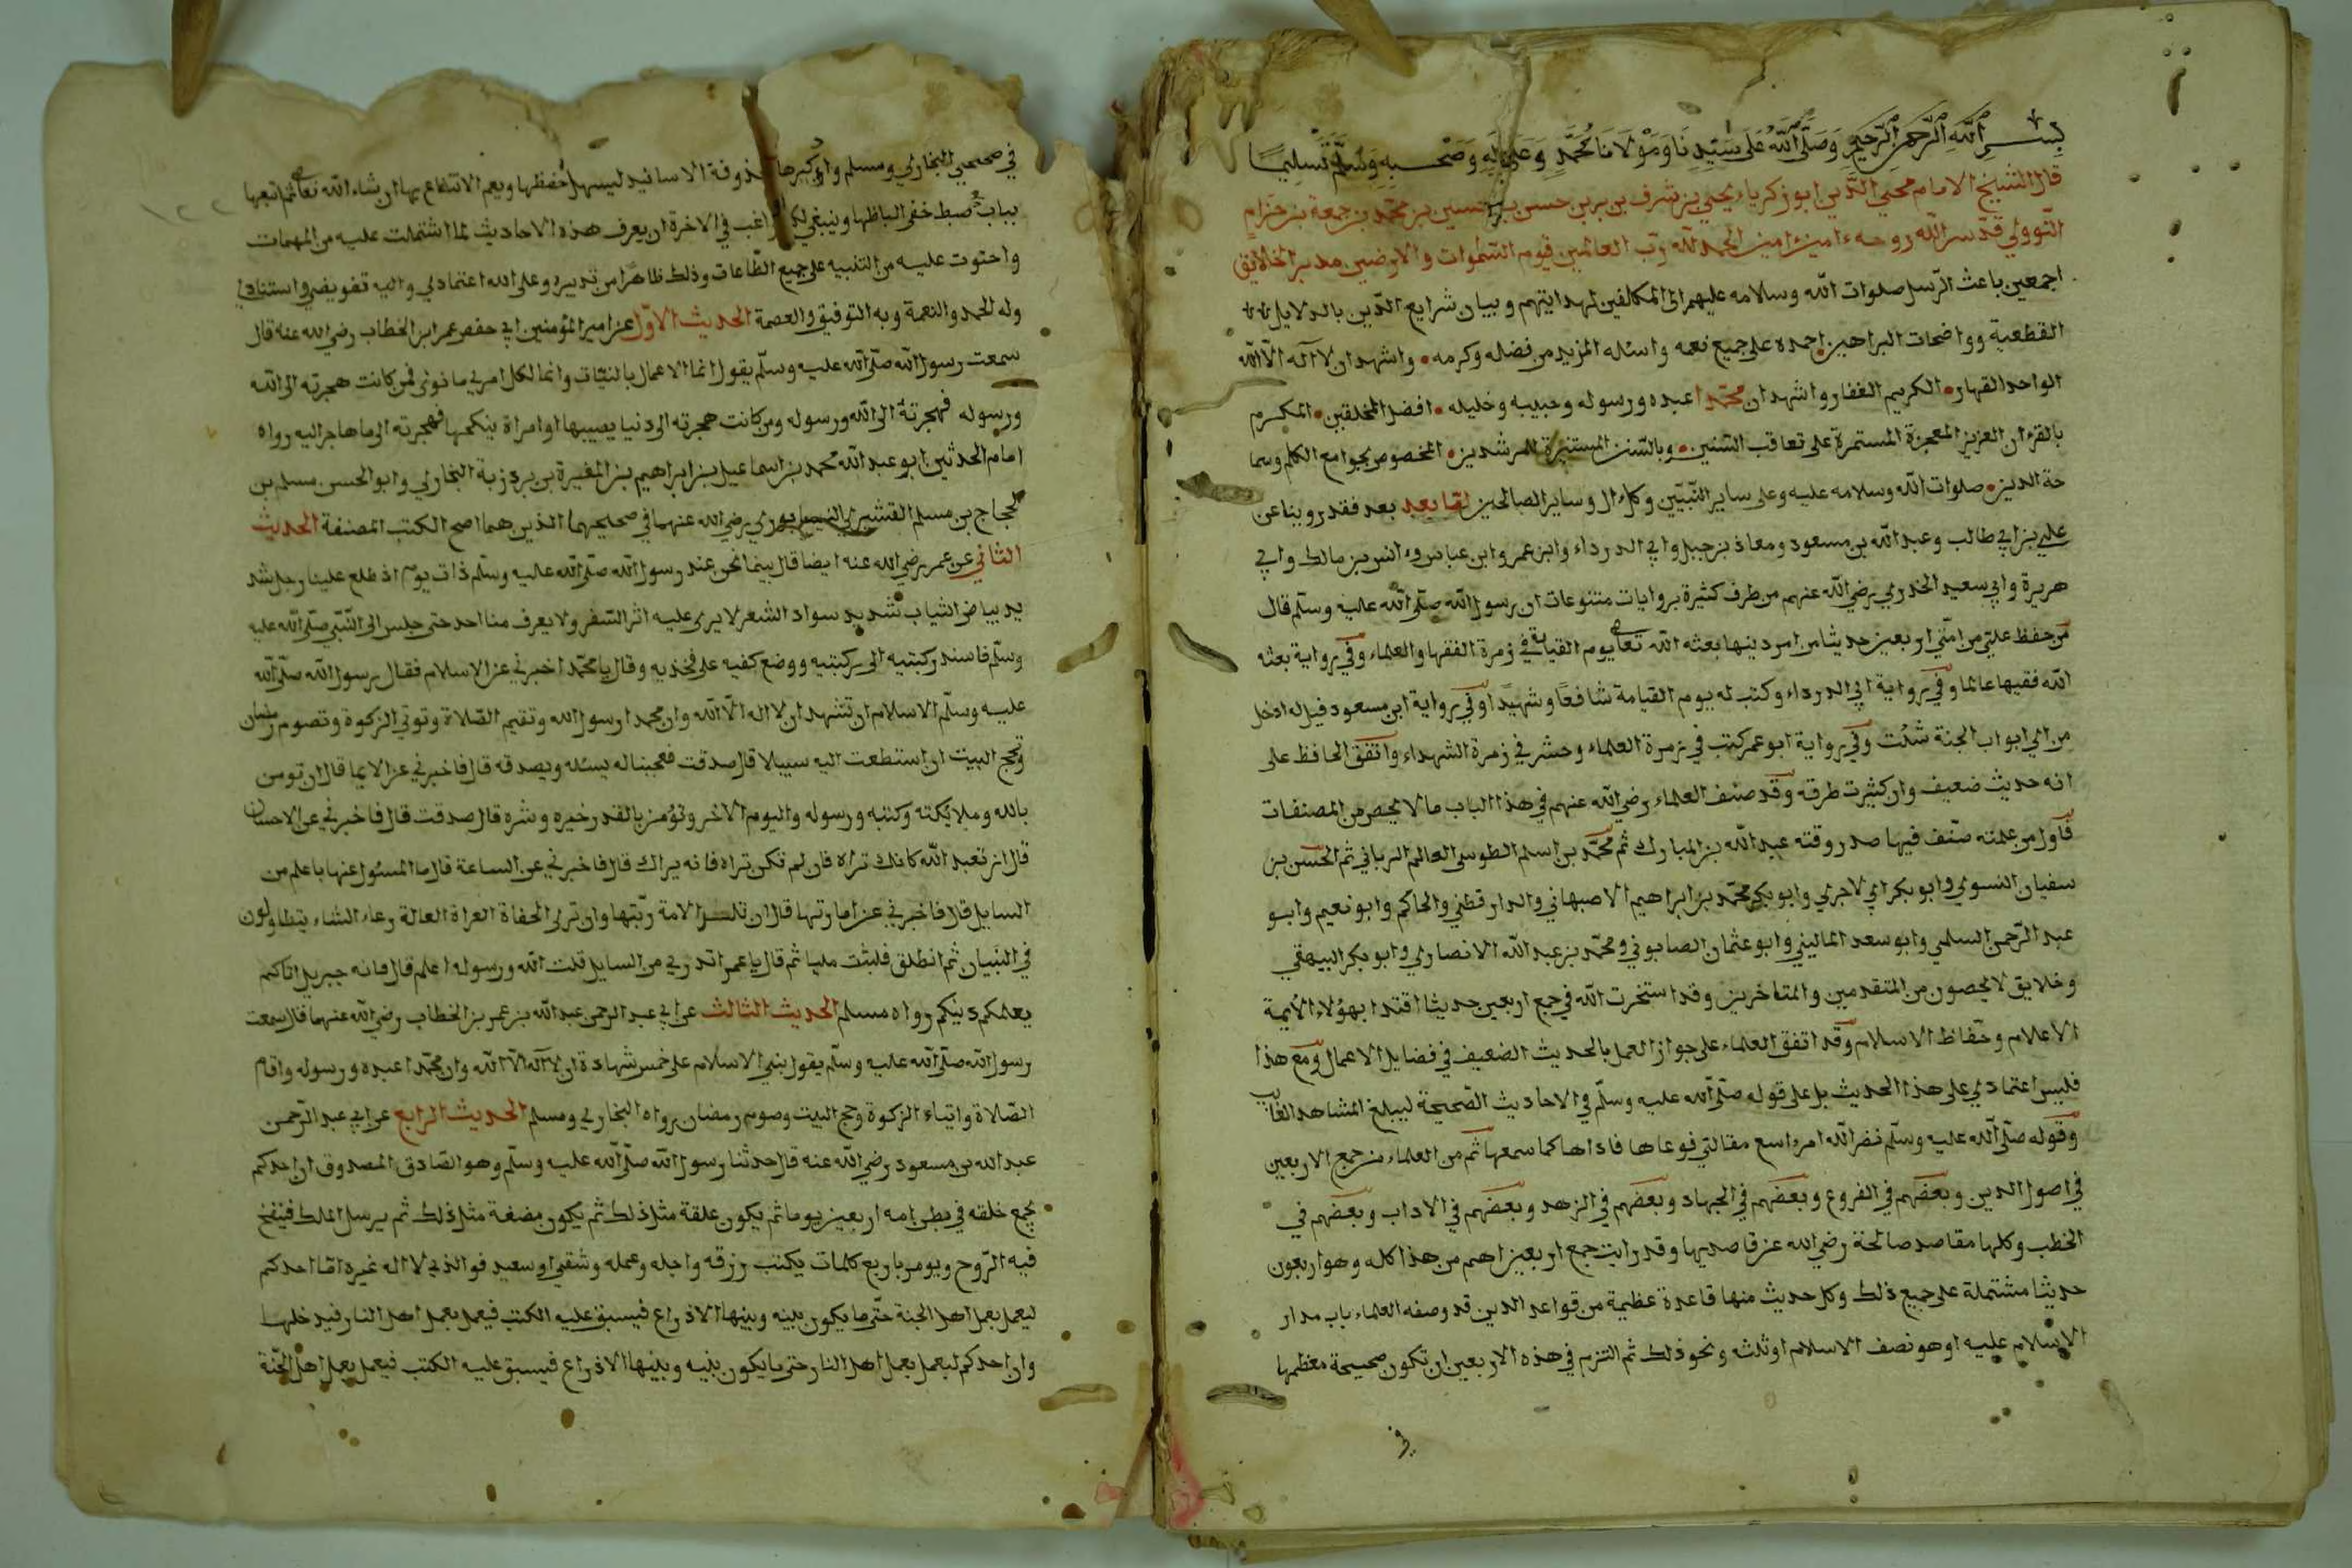 بسم الله الرحمن الرحيم وصلى الله على سيدنا ومولانا محمد وعلى اله وصحبه وسلم تسليما
قال الشيخ الامام محيي الدين ابو زكرياء يحيى بن شرف بن بربن حسن بن حسين بن محمد بن جمعة بن حزام
النووي قدس الله روحه ءامين ءامين الحمد لله رب العالمين قيوم السموات والارضين مدبر الخلايق
اجمعين باعث الرسل صلوات الله وسلامه عليهم الى المكلفين لهدايتهم وبيان شرايع الدين بالدلايل
القطعية وواضحات البراهين احمده على جميع نعمه واسئله المزيد من فضله وكرمه واشهد ان لا اله الا الله
الواحد القهار الكريم الغفار واشهد ان محمدا عبده ورسوله وحبيبه وخليله افضل المخلقين المكرم
بالقرءان العزيز المعجزة المستمرة على تعاقب السنين وبالسنن المستنيرة للمرشدين المخصوص بجوامع الكلم وسما
حة الدين صلوات الله وسلامه عليه وعلى ساير النبيين وكل ءال وساير الصالحين اما بعد بعد فقد روينا عن
علي بن ابي طالب وعبد الله بن مسعود ومعاذ بن جبل وابي الدرداء وابن عمر وابن عباس وانس بن مالك وابي
هريرة وابي سعيد الخدري رضي الله عنهم من طرف كثيرة بروايات متنوعات ان رسول الله صلى الله عليه وسلم قال
من حفظ على من امتي اربعين حديثا من امر دينها بعثه الله تعالى يوم القيامة في زمرة الفقها والعلماء وفي رواية بعثه
الله فقيها عالما وفي رواية ابي الدرداء وكنت له يوم القيامة شافعا وشهيدا وفي رواية ابن مسعود قيل له ادخل
من اي ابواب الجنة شئت وفي رواية ابو عمر كتب في زمرة العلماء وحشر في زمرة الشهداء واتفق الحافظ على
انه حديث ضعيف وان كثيرت طرقه وقد صنف العلماء رضي الله عنهم في هذا الباب ما لا يحص من المصنفات
فاول من علمته صنف فيها صدر وقته عبد الله بن المبارك ثم محمد بن اسلم الطوسي العالم الرباني ثم الحسن بن
سفيان النسوي وابو بكر الاجري وابو بكر محمد بن ابراهيم الاصبهاني والدارقطني والحاكم وابو نعيم وابو
عبد الرحمن السلمي وابو سعد الماليني وابو عثمان الصابوني ومحمد بن عبد الله الانصاري وابو بكر البيهقي
وخلايق لا يحصون من المتقدمين والمتاخرين وقد استخرت الله في جمع اربعين حديثا اقتدا بهؤلاء الايمة
الاعلام وحفاظ الاسلام وقد اتفق العلماء على جواز العمل بالحديث الضعيف في فضايل الاعمال ومع هذا
فليس اعتمادي على هذا الحديث بل على قوله صلى الله عليه وسلم في الاحاديث الصحيحة ليبلغ المشاهد الغايب
وقوله صلى الله عليه وسلم نضر الله امرء اسمع مقالتي فوعاها فاداها كما سمعها ثم من العلماء من جمع الاربعين
في اصول الدين وبعضهم في الفروع وبعضهم في الجهاد وبعضهم في الزهد وبعضهم في الاداب وبعضهم في
الخطب وكلها مقاصد صالحة رضي الله عن قاصديها وقد رايت جمع اربعين اهم من هذا كله وهو اربعون
حديثا مشتملة على جميع ذلك وكل حديث منها قاعدة عظيمة من قواعد الدين قد وصفه العلماء باب مدار
الاسلام عليه او هو نصف الاسلام او ثلثه ونحو ذلك ثم التزم في هذه الاربعين ان تكون صحيحة معظمها
في
في صحيحي البخاري ومسلم واذكرها محذوفة الاسانيد ليسهل حفظها ويعم الانتفاع بها ان شاء الله تعالى ثم اتبعها
بباب في ضبط خفي الفاظها وينبغي لكل راغب في الاخرة ان يعرف هذه الاحاديث لما اشتملت عليه من المهمات
واحتوت عليه من التنبيه على جميع الطاعات وذلك ظاهرا من تدبيره وعلى الله اعتمادي واليه تفويضي واستنادي
وله الحمد والنعمة وبه التوفيق والعصمة الحديث الاول عن امير المؤمنين ابي حفص عمر ابن الخطاب رضي الله عنه قال
سمعت رسول الله صلى الله عليه وسلم يقول انما الاعمال بالنيات وانما لكل امرئ ما نوى فمن كانت هجرته الى الله
ورسوله فهجرته الى الله ورسوله ومن كانت هجرته الى دنيا يصيبها او امراة ينكحها فهجرته الى ما هاجر اليه رواه
امام المحدثين ابو عبد الله محمد بن اسماعيل بن ابراهيم بن المغيرة بن بردزبة البخاري وابو الحسن مسلم بن
الحجاج بن مسلم القشيري النيسابوري رضي الله عنهما في صحيحيهما الذين هما اصح الكتب المصنفة الحديث
الثاني عن عمر رضي الله عنه ايضا قال بينما نحن عند رسول الله صلى الله عليه وسلم ذات يوم اذ طلع علينا رجل شد
يد بياض الثياب شديد سواد الشعر لا يرى عليه اثر السفر ولا يعرف منا احد حتى جلس الى النبي صلى الله عليه
وسلم فاسند ركبتيه الى ركبتيه ووضع كفيه على فخذيه وقال يا محمد اخبرني عن الاسلام فقال رسول الله صلى الله
عليه وسلم الاسلام ان تشهد ان لا اله الا الله وان محمدا رسول الله وتقيم الصلاة وتوتي الزكوة وتصوم رمضان
وتحج البيت ان استطعت اليه سبيلا قال صدقت فعجبنا له يسئله ويصدقه قال فاخبرني عن الايما قال ان تومن
بالله وملايكته وكتبه ورسوله واليوم الاخر وتؤمن بالقدر خيره وشره قال صدقت قال فاخبرني عن الاحسان
قال ان تعبد الله كانك تراه فان لم تكن تراه فانه يراك قال فاخبرني عن الساعة قال ما المسئول عنها باعلم من
السايل قال فاخبرني عن امارتها قال ان تلد الامة ربتها وان ترى الحفاة العراة العالة رعاء الشاء يتطاولون
في البنيان ثم انطلق فلبثت مليا ثم قال يا عمر اتدري من السايل قلت الله ورسوله اعلم قال فانه جبريل اتاكم
يعلمكم دينكم رواه مسلم الحديث الثالث عن ابي عبد الرحمن عبد الله بن عمر بن الخطاب رضي الله عنهما قال سمعت
رسول الله صلى الله عليه وسلم يقول بني الاسلام على خمس شهادة ان لا اله الا الله وان محمدا عبده ورسوله واقام
الصلاة وايتاء الزكوة وحج البيت وصوم رمضان رواه البخاري ومسلم الحديث الرابع عن ابي عبد الرحمن
عبد الله بن مسعود رضي الله عنه قال حدثنا رسول الله صلى الله عليه وسلم وهو الصادق المصدوق ان احدكم
يجمع خلقه في بطن امه اربعين يوما ثم يكون علقة مثل ذلك ثم يكون مضغة مثل ذلك ثم يرسل الملك فينفخ
فيه الروح ويومر باربع كلمات يكتب رزقه واجله وعمله وشقي او سعيد فوالذي لا اله غيره اما احدكم
ليعمل بعمل اهل الجنة حتى ما يكون بينه وبينها الا ذراع فيسبق عليه الكتب فيعمل بعمل اهل النار فيدخلها
وان احدكم ليعمل بعمل اهل النار حتى ما يكون بينه وبينها الا ذراع فيسبق عليه الكتب فيعمل بعمل اهل الجنة